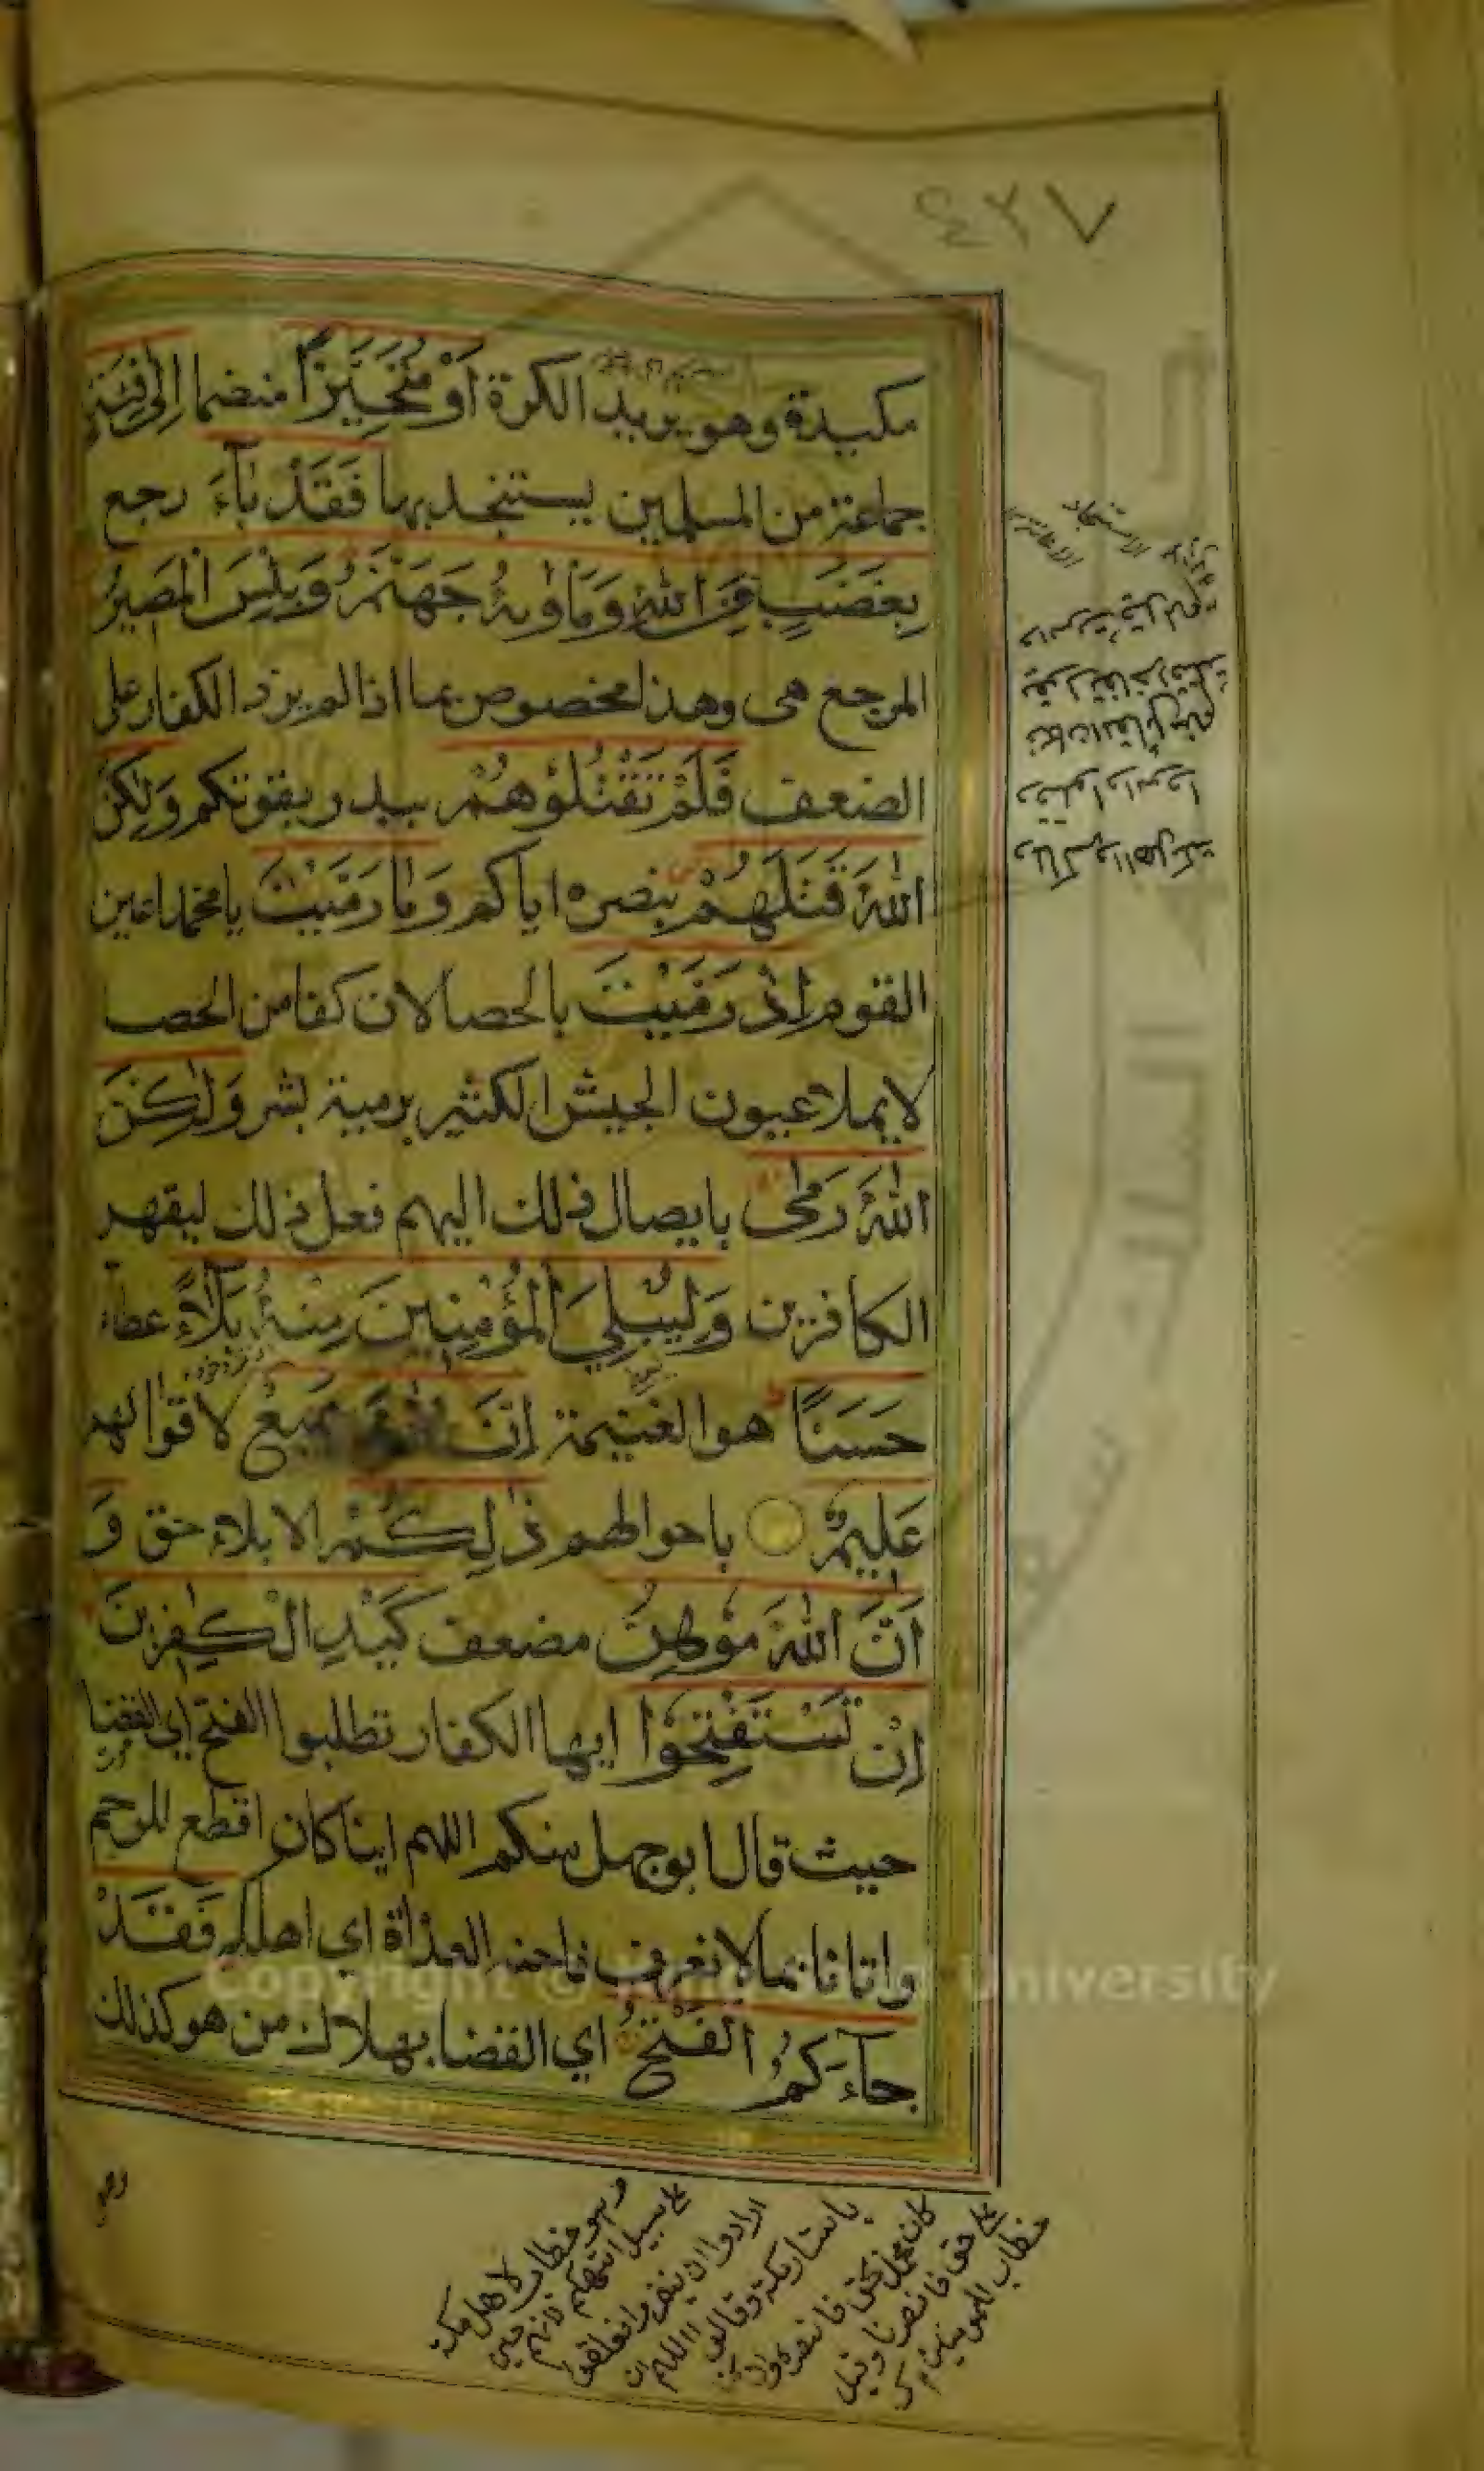 ٤٢٧
مكيدة وهو يريد الكرة أَوْ مُتَحَيِّزًا منضما إِلَى فِئَةٍ
جماعة من المسلمين يستنجد بها فَقَدْ بَآءَ رجع
بِغَضَبٍ مِنَ اللهِ وَمَأْوٰيهُ جَهَنَّمُ وَبِئْسَ الْمَصِيرُ
المرجع هى وهذا مخصوص بما اذا لم يزد الكفار على
الضعف فَلَمْ تَقْتُلُوْهُمْ ببدر بقوتكم وَلٰكِنَّ
اللهَ قَتَلَهُمْ بنصره اياكم وَمَا رَمَيْتَ يا محمد اعين
القوم إِذْ رَمَيْتَ بالحصا لان كفا من الحصب
لا يملا عيون الجيش الكثير برمية بشر وَلٰكِنَّ
اللهَ رَمٰى بايصال ذلك اليهم فعل ذلك ليقهر
الكافرين وَلِيُبْلِيَ الْمُؤْمِنِينَ مِنْهُ بَلَآءً عطاء
حَسَنًا هو الغنيمة إِنَّ اللهَ سَمِيعٌ لاقوالهم
عَلِيمٌ باحوالهم ذٰلِكُمْ الابلاء حق وَ
أَنَّ اللهَ مُوْهِنُ مضعف كَيْدِ الْكٰفِرِينَ
إِنْ تَسْتَفْتِحُوْا ايها الكفار تطلبوا الفتح اي القضا
حيث قال ابو جهل منكم اللهم اينا كان اقطع للرحم
واتانا بما لا نعرف فاحنه الغداة اي اهلكه فَقَدْ
جَآءَكُمُ الْفَتْحُ اي القضا بهلاك من هو كذلك
وهو خطاب لاهل مكة
على سبيل التهكم لانهم حين
ارادوا ان ينفروا تعلقوا
باستار مكة وقالوا اللهم ان
كان محمد على حق فانصره وان كنا
على حق فانصرنا وقيل
خطاب للمؤمنين